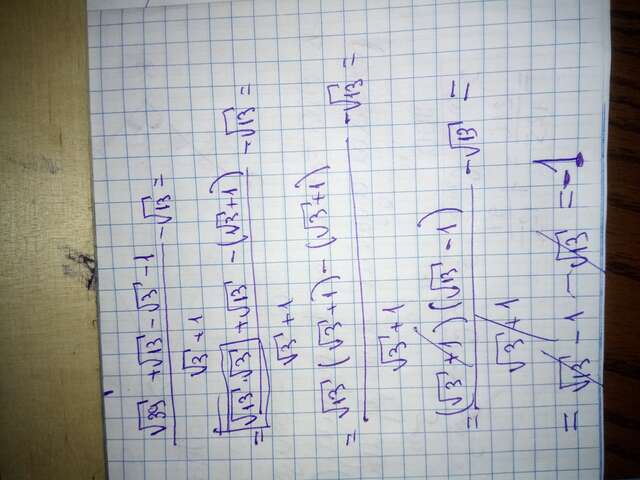 (√39 + √13 - √3 - 1)/(√3 + 1) - √13 =
= (√13 · √3 + √13 - (√3 + 1))/(√3 + 1) - √13 =
= (√13 (√3 + 1) - (√3 + 1))/(√3 + 1) - √13 =
= ((√3 + 1)(√13 - 1))/(√3 + 1) - √13 =
= √13 - 1 - √13 = -1